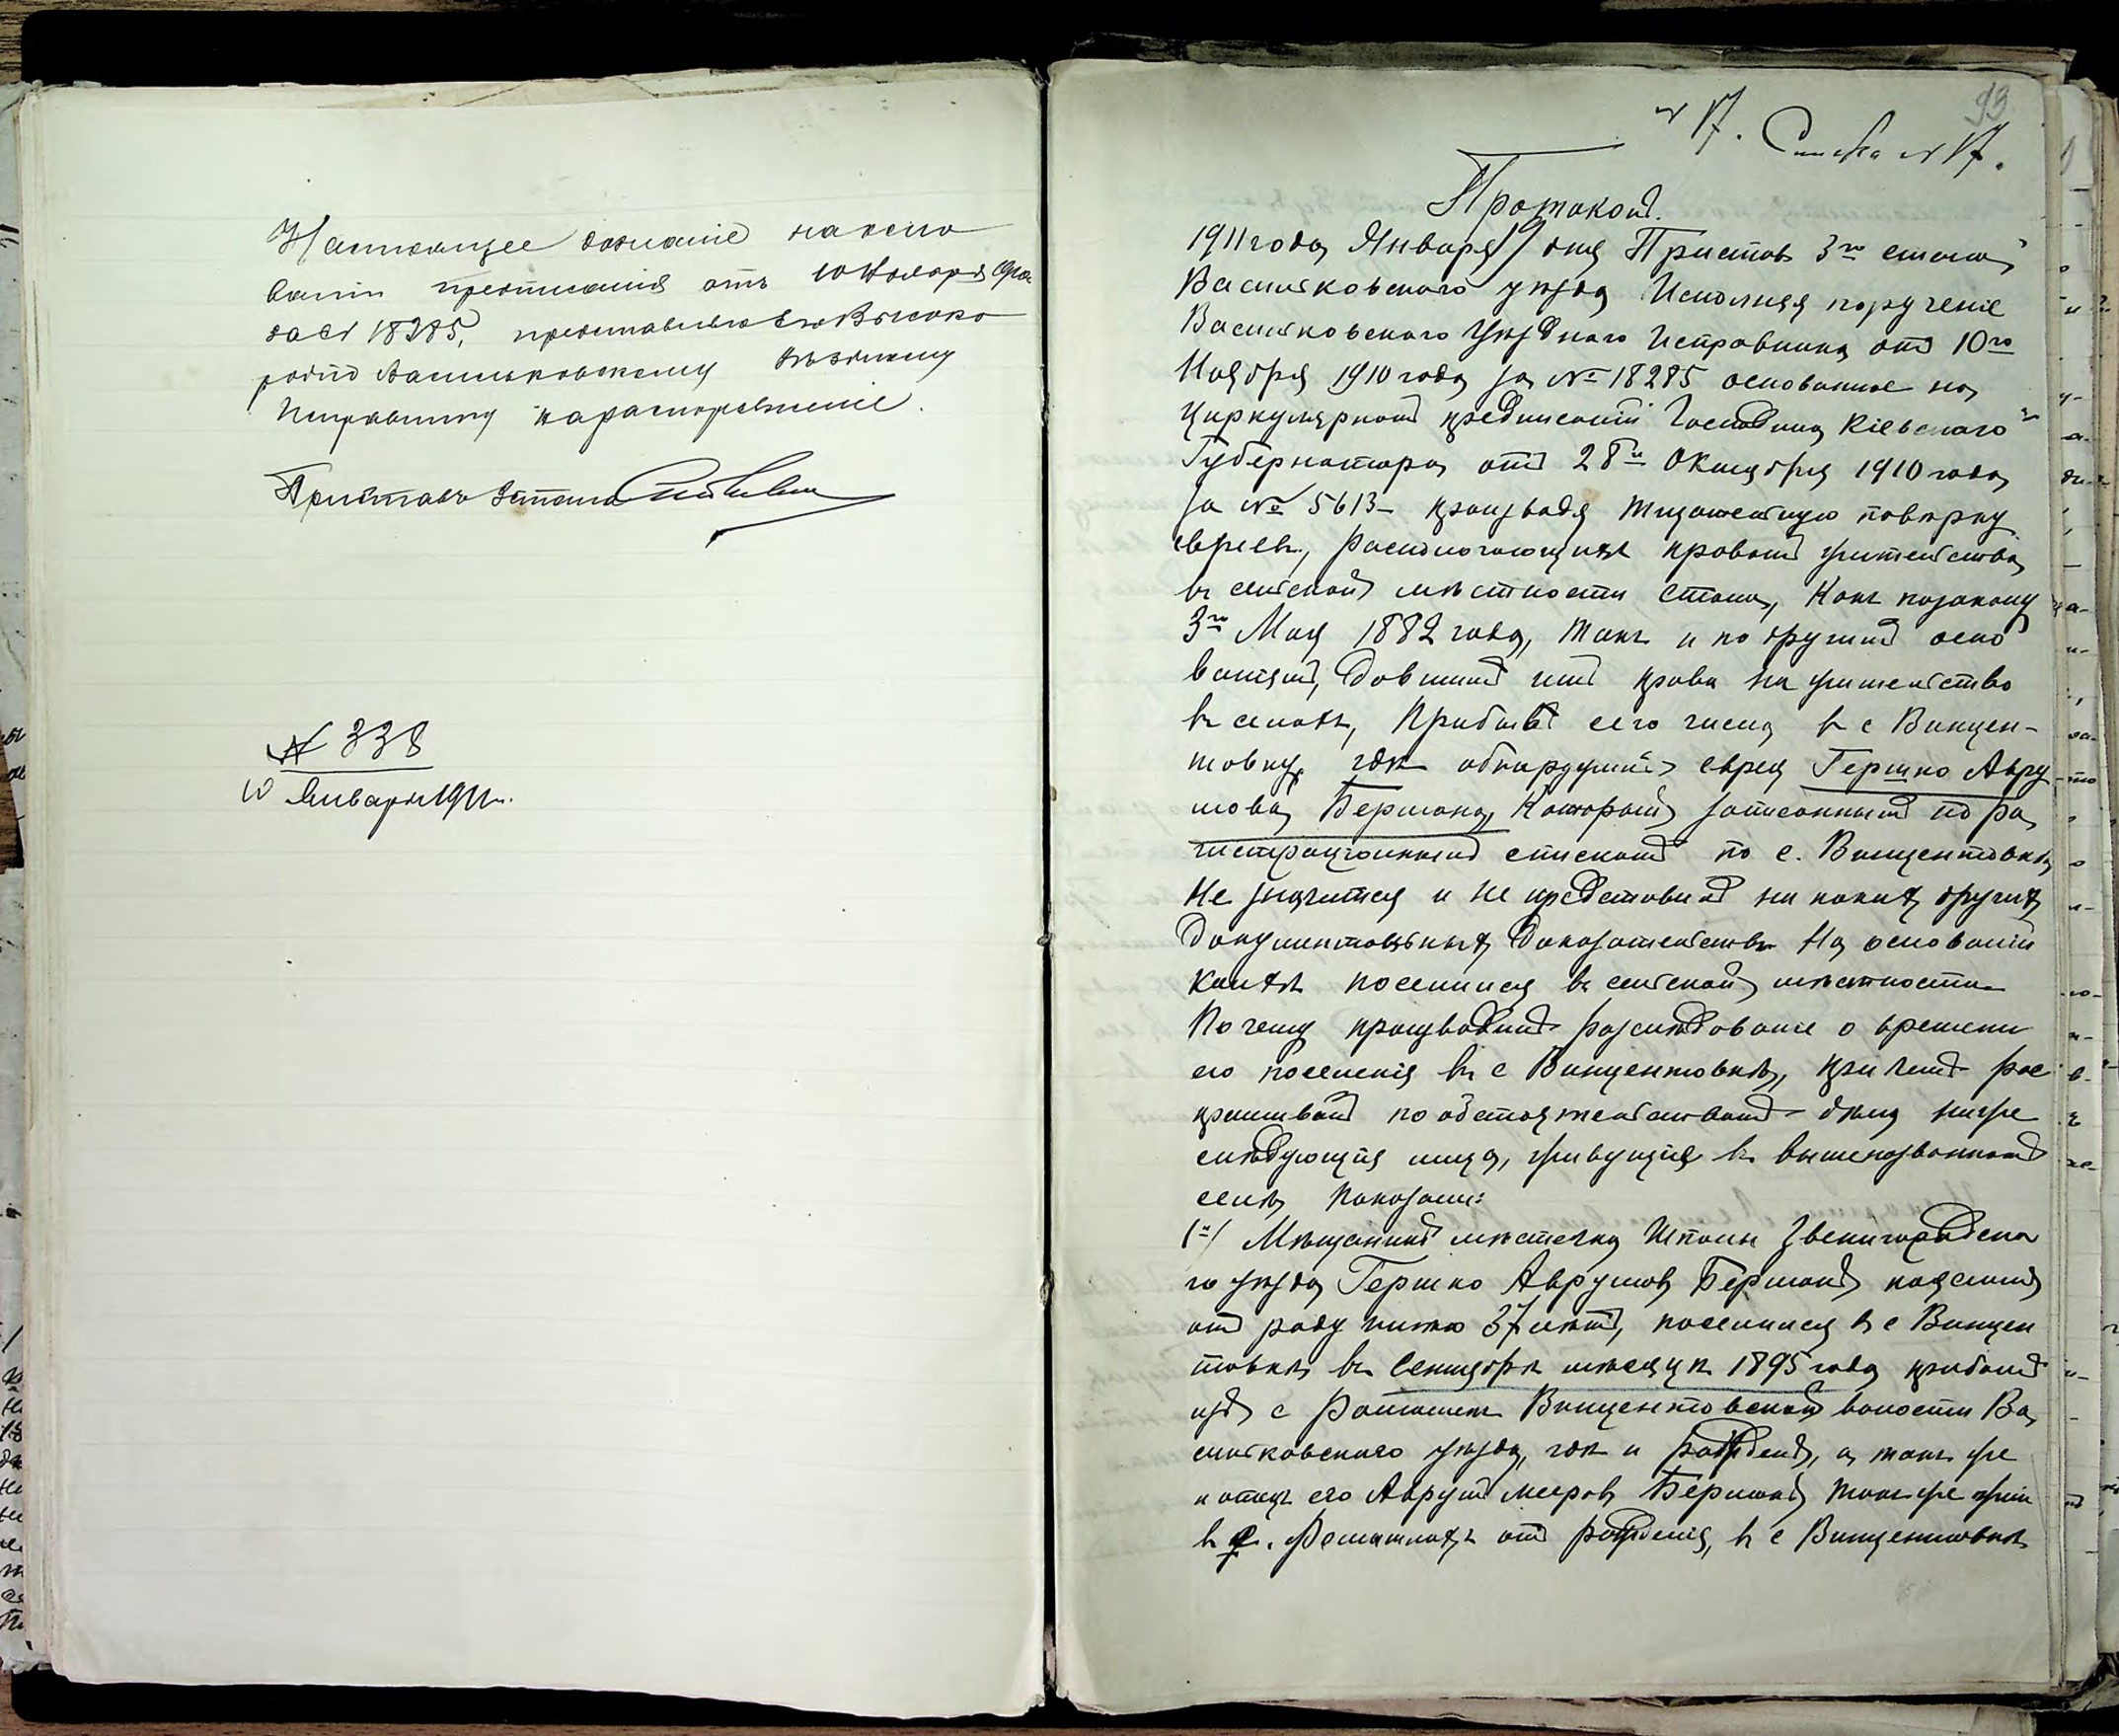 Настоящее дознаніе на осно
ваніи предписанія отъ 10 Ноября 1910 го
да № 18285, представляю Его Высоко
родію Васильковскому Уѣздному
Исправнику на распоряженіе.
Приставъ 3 стана
№ 338
10 Января 1911 г.
93
№ 17. Списка № 17.
Протоколъ.
1911 года Января 9 дня Приставъ 3го стана
Васильковскаго уѣзда Исполняя порученіе
Васильковскаго Уѣзднаго Исправника отъ 10го
Ноября 1910 года за № 18285 основанное на
Циркулярномъ предписаніи Господина Кіевскаго
Губернатора отъ 28го Октября 1910 года
за № 5613 – производя тщательную повѣрку
евреевъ, располагающихъ правомъ жительства
въ сельской мѣстности стана, Какъ по закону
3го Мая 1882 года, такъ и по другимъ осно
ваніямъ, Давшимъ имъ права на жительство
въ селахъ, Прибылъ сего числа въ с Винцен-
товку, гдѣ обнаружилъ еврея Гершко Авру
мова Бермана, Который записаннымъ по ре
гистраціоннымъ спискамъ по с. Винцентовкѣ
Не значится и не представилъ ни какихъ другихъ
Документальныхъ Доказательствъ На основаніи
Коихъ поселился въ сельской мѣстности
По чему производилъ разслѣдованіе о времени
его поселенія въ с Винцентовкѣ, при чемъ рас
прашивалъ по обстоятельствамъ дѣла ниже
слѣдующія лица, живущія въ вышеназванномъ
селѣ Показали:
1й/ Мѣщанинъ мѣстечка Шполы Звенигородска
го уѣзда Гершко Аврумовъ Берманъ пояснилъ
отъ роду имѣю 37 лѣтъ, поселился въ с Винцен
товкѣ въ Сентябрѣ мѣсяцѣ 1895 года прибылъ
изъ с Винцентовской волости Ва
сильковскаго уѣзда, гдѣ и рожденъ, а такъ же
и отецъ его Аврумъ Мееровъ Берманъ такъ же жилъ
въ с. отъ рожденія, въ с Винцентовкѣ